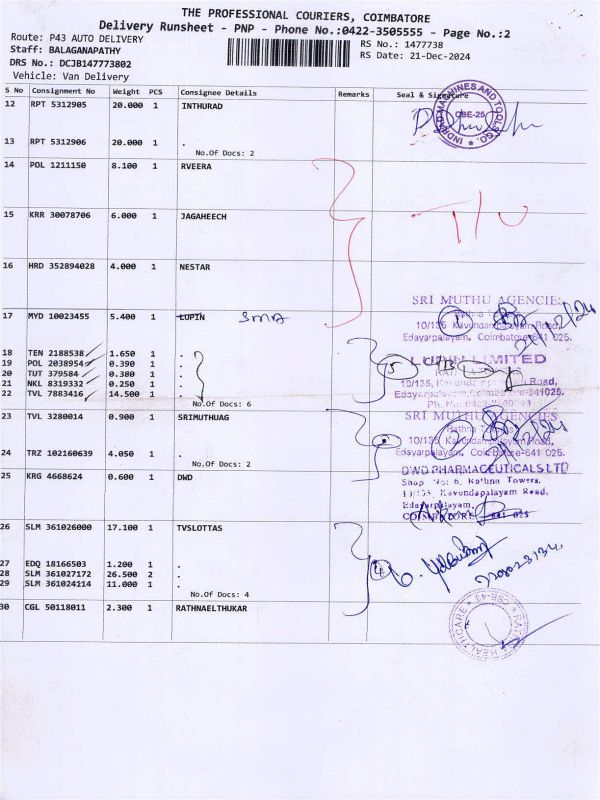 THE PROFESSIONAL COURIERS, COIMBATORE
Delivery Runsheet - PNP - Phone No.:0422-3505555 - Page No.:2
Route: P43 AUTO DELIVERY
Staff: BALAGANAPATHY
DRS No.: DCJB147773802
Vehicle: Van Delivery
RS No.: 1477738
RS Date: 21-Dec-2024
S No Consignment No Weight PCS Consignee Details Remarks Seal & Signature
12 RPT 5312905 20.000 1 INTHURAD
13 RPT 5312906 20.000 1 .
No.Of Docs: 2
14 POL 1211150 8.100 1 RVEERA
15 KRR 30078706 6.000 1 JAGAHEECH
16 HRD 352894028 4.000 1 NESTAR
17 MYD 10023455 5.400 1 LUPIN SMA
18 TEN 2188538 1.650 1 .
19 POL 2038954 0.390 1 .
20 TUT 379584 0.380 1 .
21 NKL 8319332 0.250 1 .
22 TVL 7883416 14.500 1 .
No.Of Docs: 6
23 TVL 3280014 0.900 1 SRIMUTHUAG
24 TRZ 102160639 4.050 1 .
No.Of Docs: 2
25 KRG 4668624 0.600 1 DWD
26 SLM 361026000 17.100 1 TVSLOTTAS
27 EDQ 18166503 1.200 1 .
28 SLM 361027172 26.500 2 .
29 SLM 361024114 11.000 1 .
No.Of Docs: 4
30 CGL 50118011 2.300 1 RATHNAELTHUKAR
CBE-25
T/U
SRI MUTHU AGENCIES
10/135 Kavundampalayam Road,
Edayarpalayam, Coimbatore-641 025.
5
LUPIN LIMITED
10/135, Kavundampalayam Road,
Edayarpalayam, Coimbatore-641025.
SRI MUTHU AGENCIES
Rathna Towers
10/135, Kavundampalayam Road,
Edayarpalayam, Coimbatore-641 025.
DWD PHARMACEUTICALS LTD
Shop No: 6, Rathna Towers,
10/135, Kavundapalayam Road,
Edayarpalayam,
COIMBATORE 641 025
4